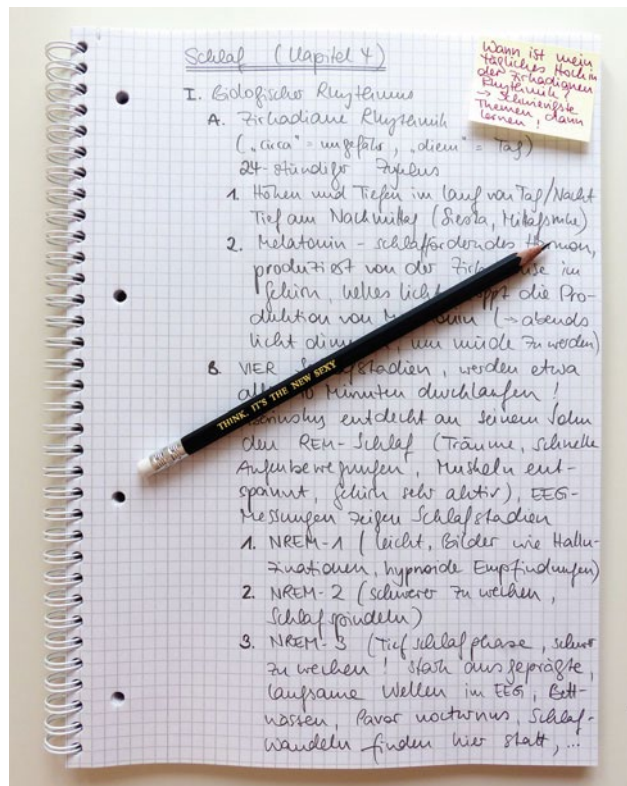 Schlaf (Kapitel 4)
Wann ist mein
tägliches Hoch in
der zirkadianen
Rhythmik?
→ Schwierigste
Themen dann
lernen!
I. Biologischer Rhythmus
A. Zirkadiane Rhythmik
("circa" = ungefähr, "diem" = Tag)
24-stündiger Zyklus
1. Höhen und Tiefen im Lauf von Tag/Nacht
Tief am Nachmittag (Siesta, Mittagsruhe)
2. Melatonin - schlafförderndes Hormon,
produziert von der im
Gehirn, helles Licht die Pro-
duktion von (→ abends
Licht um müde zu werden)
B. VIER werden etwa
Minuten durchlaufen!
entdeckt an seinem Sohn
den REM-Schlaf (Träume, schnelle
Augenbewegungen, Muskeln ent-
spannt, Gehirn sehr aktiv), EEG-
Messungen zeigen Schlafstadien
1. NREM-1 (leicht, Bilder wie Hallu-
zinationen, hypnoide Empfindungen)
2. NREM-2 (schwerer zu wecken,
Schlafspindeln)
3. NREM-3 (Tiefschlafphase, schwer
zu wecken! stark ausgeprägte,
langsame Wellen im EEG, Bett-
nässen, Pavor nocturnus, Schlaf-
wandeln finden hier statt, ...
THINK. IT'S THE NEW SEXY